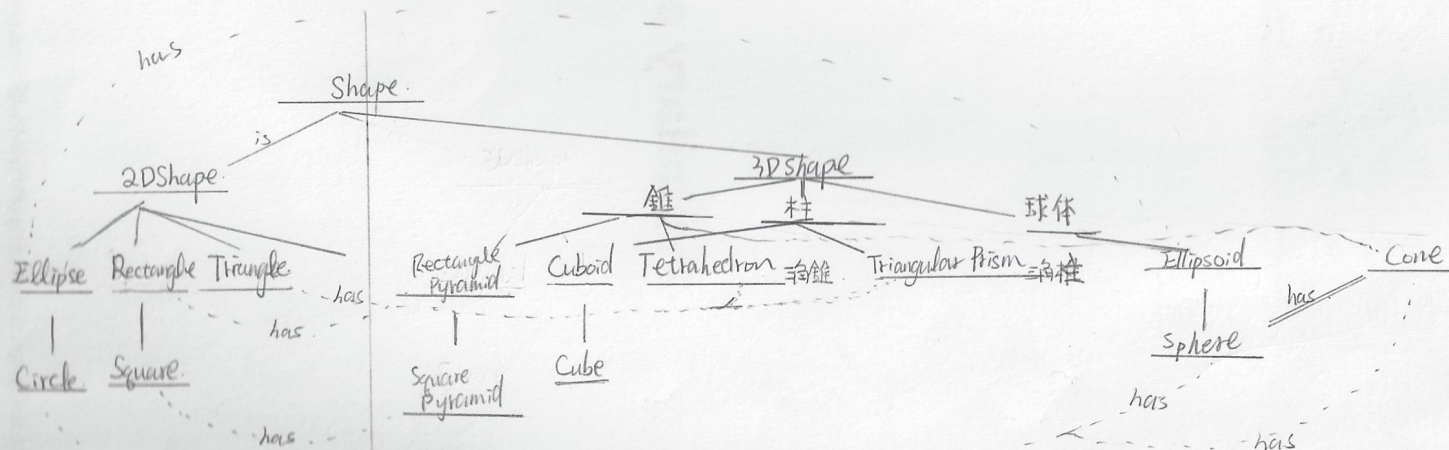 has
Shape.
is
2DShape.
3D Shape
錐
柱
球体
Ellipse
Rectanghe
Trianghe
Rectanghe
Pyramid
Cuboid
Tetrahedron
三角錐
Triangular Prism
三角柱
Ellipsoid
Cone
has
has
has
Circle
Square.
Square
Pyramid
Cube
Sphere
has
has
has